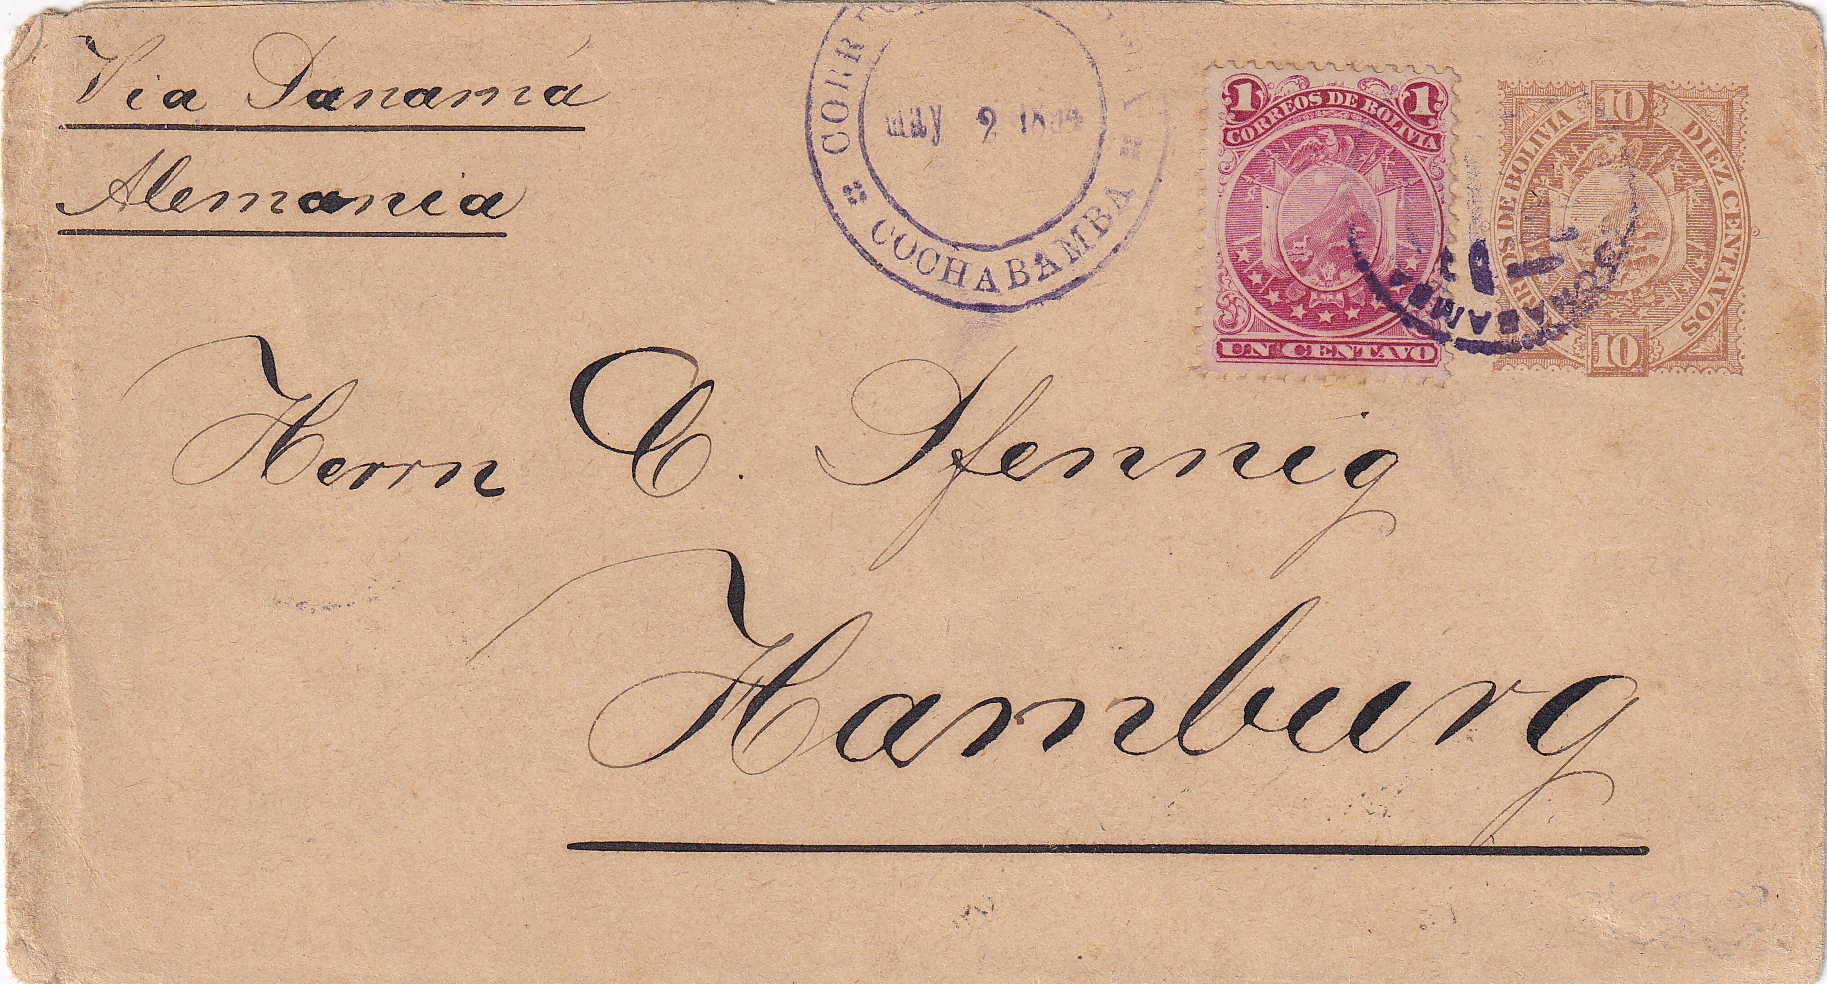 Via Panamá
Alemania
CORR
COCHABAMBA
MAY 2 1894
1 CORREOS DE BOLIVIA 1
UN CENTAVO
10
CORREOS DE BOLIVIA
DIEZ CENTAVOS
10
COCHABAMBA
Herrn C. Pfennig
Hamburg